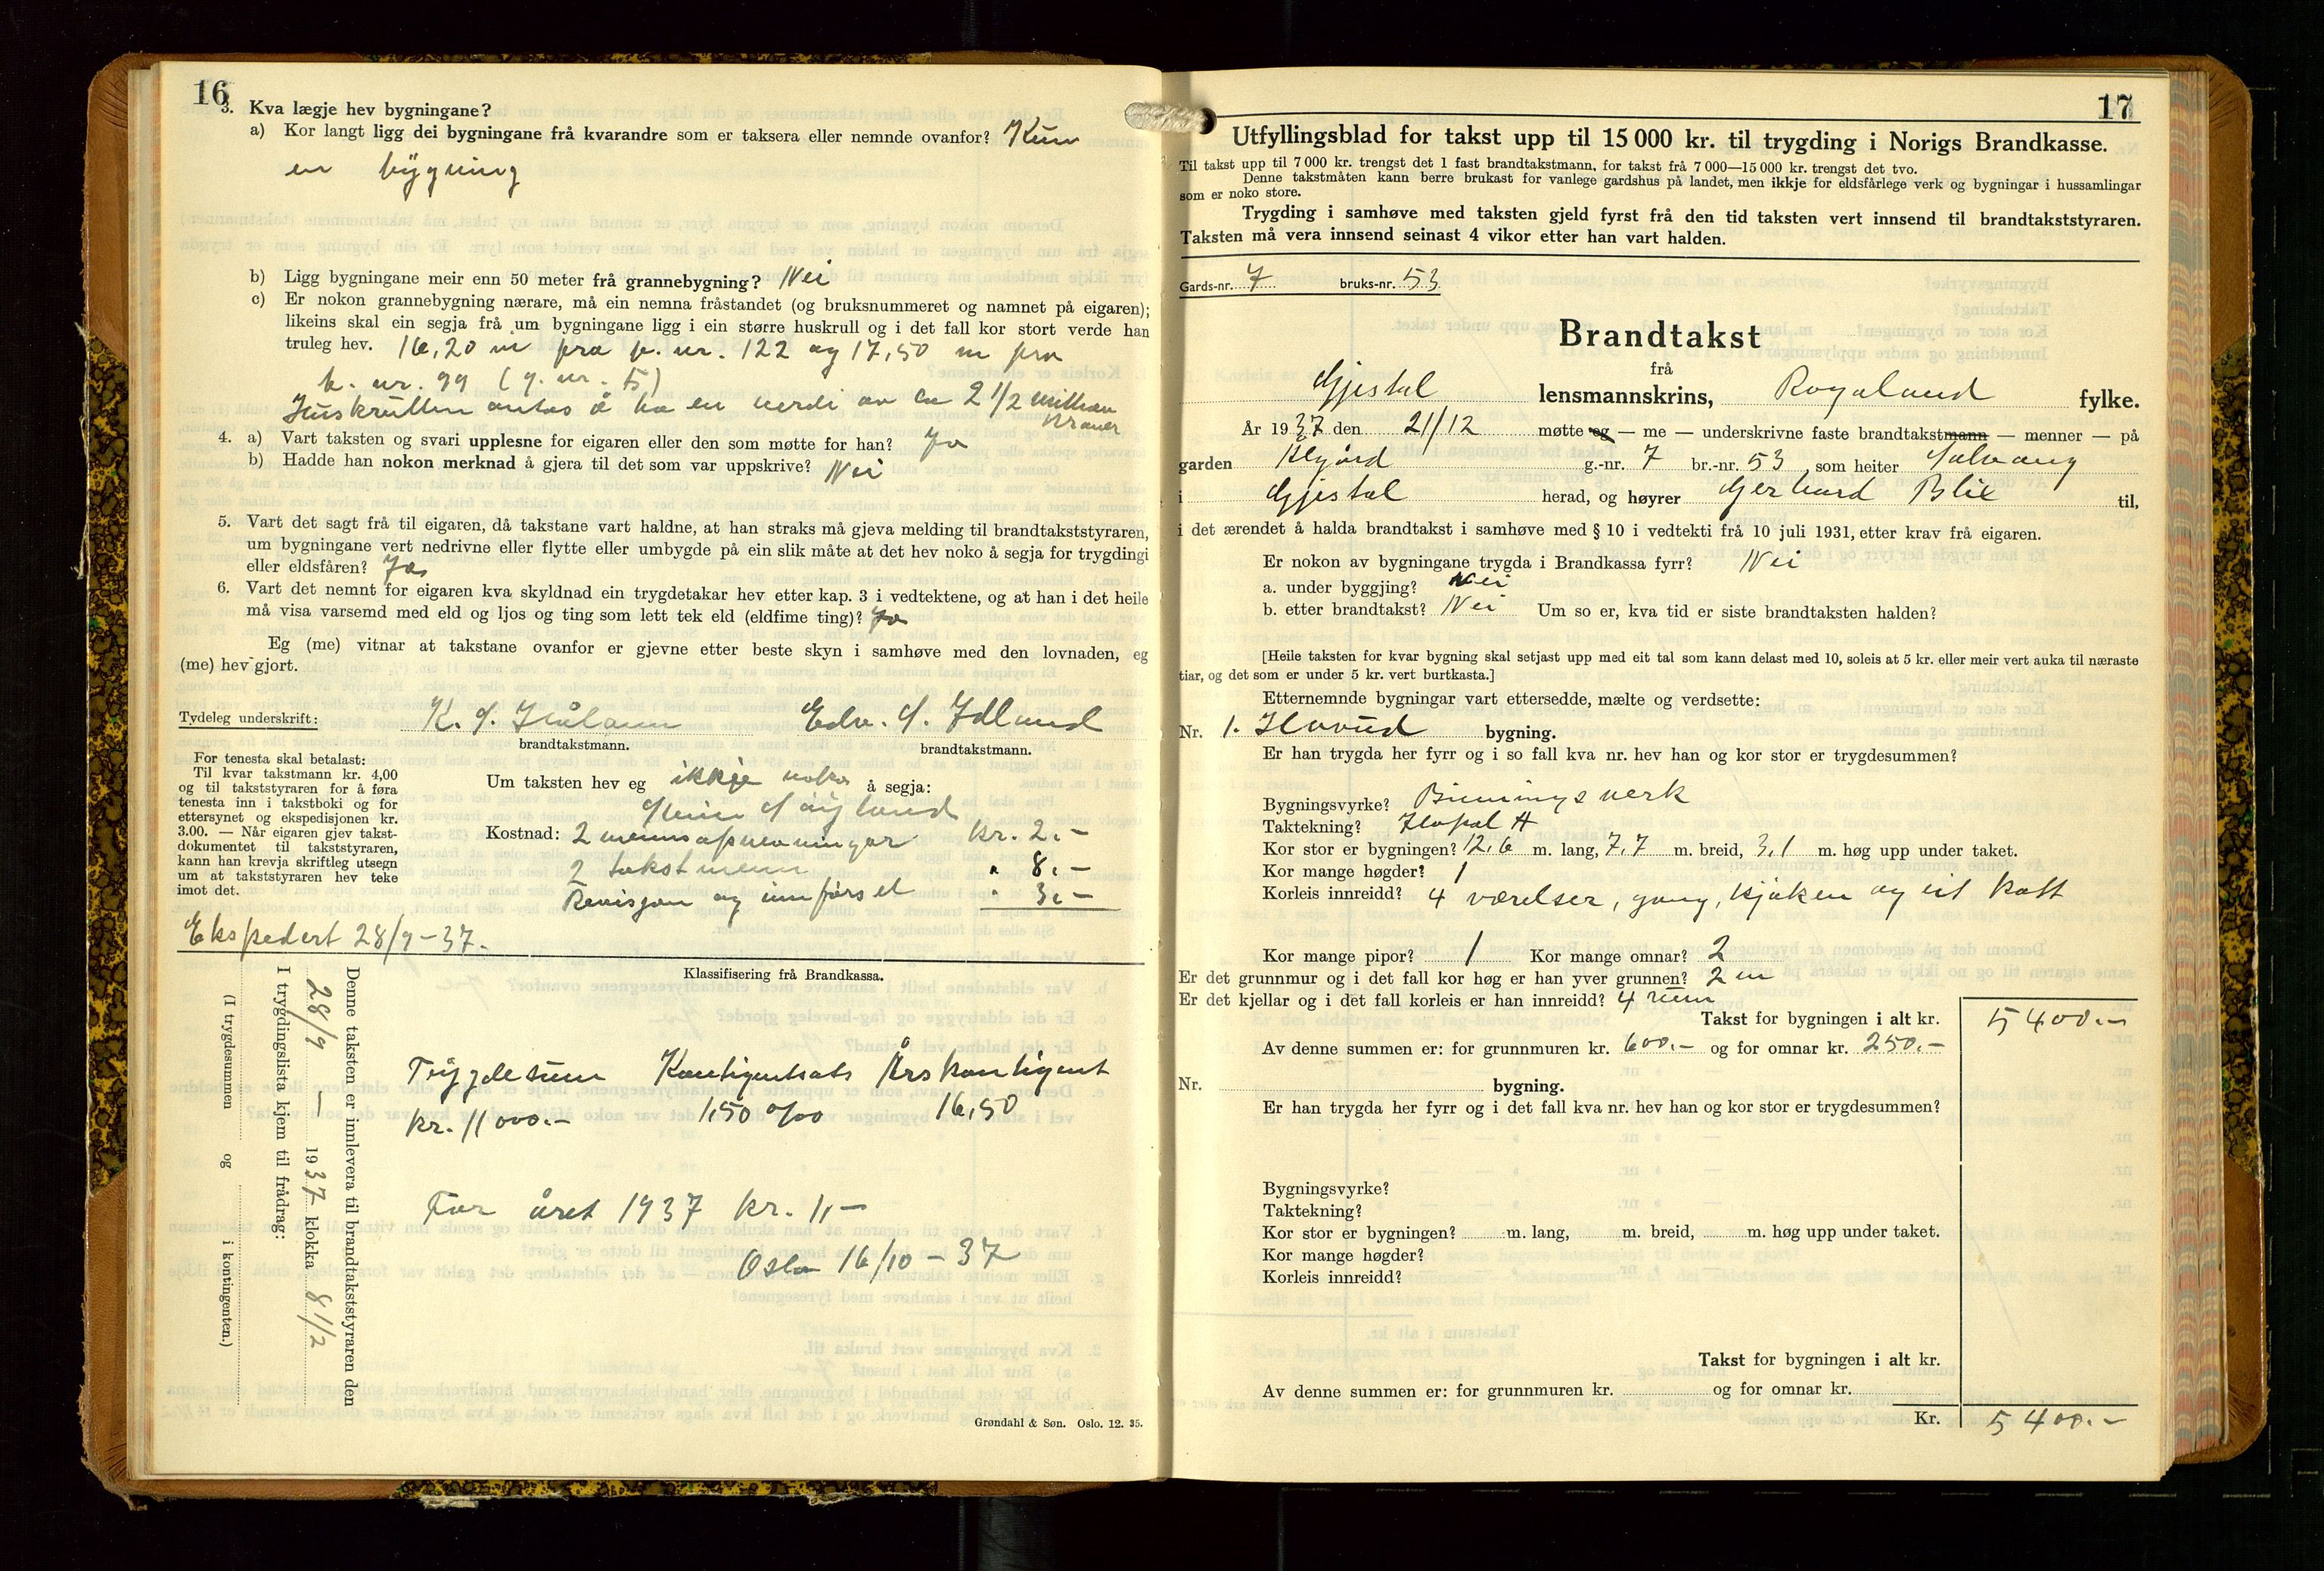 16
3. Kva lægje hev bygningane?
a) Kor langt ligg dei bygningane frå kvarandre som er taksera eller nemnde ovanfor? Kun
en bygning
b) Ligg bygningane meir enn 50 meter frå grannebygning? Nei
c) Er nokon grannebygning nærare, må ein nemna fråstandet (og bruksnummeret og namnet på eigaren);
likeins skal ein segja frå um bygningane ligg i ein større huskrull og i det fall kor stort verde han
truleg hev. 16,20 m fra b. nr. 122 og 17,50 m fra
b. nr. 99 (g. nr. 5)
Huskrullen antas å ha en verdi av ca 2 1/2 million
kroner
4. a) Vart taksten og svari upplesne for eigaren eller den som møtte for han? Ja
b) Hadde han nokon merknad å gjera til det som var uppskrive? Nei
5. Vart det sagt frå til eigaren, då takstane vart haldne, at han straks må gjeva melding til brandtakststyraren,
um bygningane vert nedrivne eller flytte eller umbygde på ein slik måte at det hev noko å segja for trygdingi
eller eldsfåren? Ja
6. Vart det nemnt for eigaren kva skyldnad ein trygdetakar hev etter kap. 3 i vedtektene, og at han i det heile
må visa varsemd med eld og ljos og ting som lett tek eld (eldfime ting)? Ja
Eg (me) vitnar at takstane ovanfor er gjevne etter beste skyn i samhøve med den lovnaden, eg
(me) hev gjort.
Tydeleg underskrift: K. S. Håland Edv. S. Idland
brandtakstmann. brandtakstmann.
For tenesta skal betalast:
Til kvar takstmann kr. 4,00
og til takststyraren for å føra
tenesta inn i takstboki og for
ettersynet og ekspedisjonen kr.
3.00. — Når eigaren gjev takst-
dokumentet til takststyraren,
kann han krevja skriftleg utsegn
um at takststyraren hev teke
imot det.
Um taksten hev eg ikkje noko å segja:
Kostnad: 2 mennsopnevningar kr. 2.-
2 takstmenn " 8.-
Revisjon og innførsel " 3.-
Ekspedert 28/9-37.
Klassifisering frå Brandkassa.
Denne taksten er innlevera til brandtakststyraren den
28/9 — 1937 klokka 8 1/2
I trygdingslista kjem til frådrag:
(I trygdesummen og i kontingenten.)
Trygdesum Kontigentsats Årskontigent
kr. 11000.- 1,50 o/oo 16,50
For året 1937 kr. 11-
Oslo 16/10-37
Grøndahl & Søn. Oslo. 12. 35.
17
Utfyllingsblad for takst upp til 15 000 kr. til trygding i Norigs Brandkasse.
Til takst upp til 7 000 kr. trengst det 1 fast brandtakstmann, for takst frå 7 000—15 000 kr. trengst det tvo.
Denne takstmåten kann berre brukast for vanlege gardshus på landet, men ikkje for eldsfårlege verk og bygningar i hussamlingar
som er noko store.
Trygding i samhøve med taksten gjeld fyrst frå den tid taksten vert innsend til brandtakststyraren.
Taksten må vera innsend seinast 4 vikor etter han vart halden.
Gards-nr. 7 bruks-nr. 53
Brandtakst
frå
Gjestal lensmannskrins, Rogaland fylke.
År 1937 den 21/12 møtte eg — me — underskrivne faste brandtakstmann — menner — på
garden Ålgård g.-nr. 7 br.-nr. 53 som heiter Solvang
i Gjestal herad, og høyrer Gerhard Blix til,
i det ærendet å halda brandtakst i samhøve med § 10 i vedtekti frå 10 juli 1931, etter krav frå eigaren.
Er nokon av bygningane trygda i Brandkassa fyrr? Nei
a. under byggjing? Nei
b. etter brandtakst? Nei Um so er, kva tid er siste brandtaksten halden?
[Heile taksten for kvar bygning skal setjast upp med eit tal som kann delast med 10, soleis at 5 kr. eller meir vert auka til næraste
tiar, og det som er under 5 kr. vert burtkasta.]
Etternemnde bygningar vart ettersedde, mælte og verdsette:
Nr. 1. Hovud bygning.
Er han trygda her fyrr og i so fall kva nr. hev han og kor stor er trygdesummen?
Bygningsvyrke? Binningsverk
Taktekning?
Kor stor er bygningen? 12,6 m. lang, 7,7 m. breid, 3,1 m. høg upp under taket.
Kor mange høgder? 1
Korleis innreidd? 4 værelser, gang, kjøken og eit kott
Kor mange pipor? 1 Kor mange omnar? 2
Er det grunnmur og i det fall kor høg er han yver grunnen? 2 m
Er det kjellar og i det fall korleis er han innreidd? 4 rum
Takst for bygningen i alt kr. 5400.-
Av denne summen er: for grunnmuren kr. 600.- og for omnar kr. 250.-
Nr. bygning.
Er han trygda her fyrr og i det fall kva nr. hev han og kor stor er trygdesummen?
Bygningsvyrke?
Taktekning?
Kor stor er bygningen? m. lang, m. breid, m. høg upp under taket.
Kor mange høgder?
Korleis innreidd?
Takst for bygningen i alt kr.
Av denne summen er: for grunnmuren kr. og for omnar kr.
Kr. 5400.-